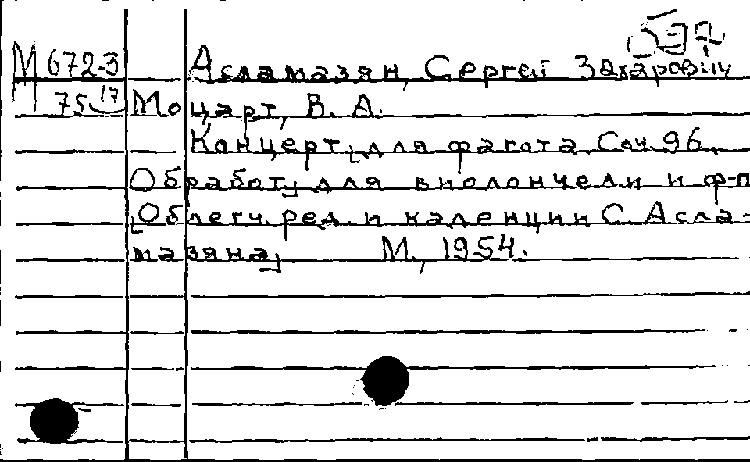 597
М 672-3 Асламазян, Сергей Захарович
75 17 Моцарт, В. А.
Концерт для фагота Соч. 96.
Обработ. для виолончели и ф-п
[Облегч. ред. и каденции С. Асла-
мазяна] М., 1954.